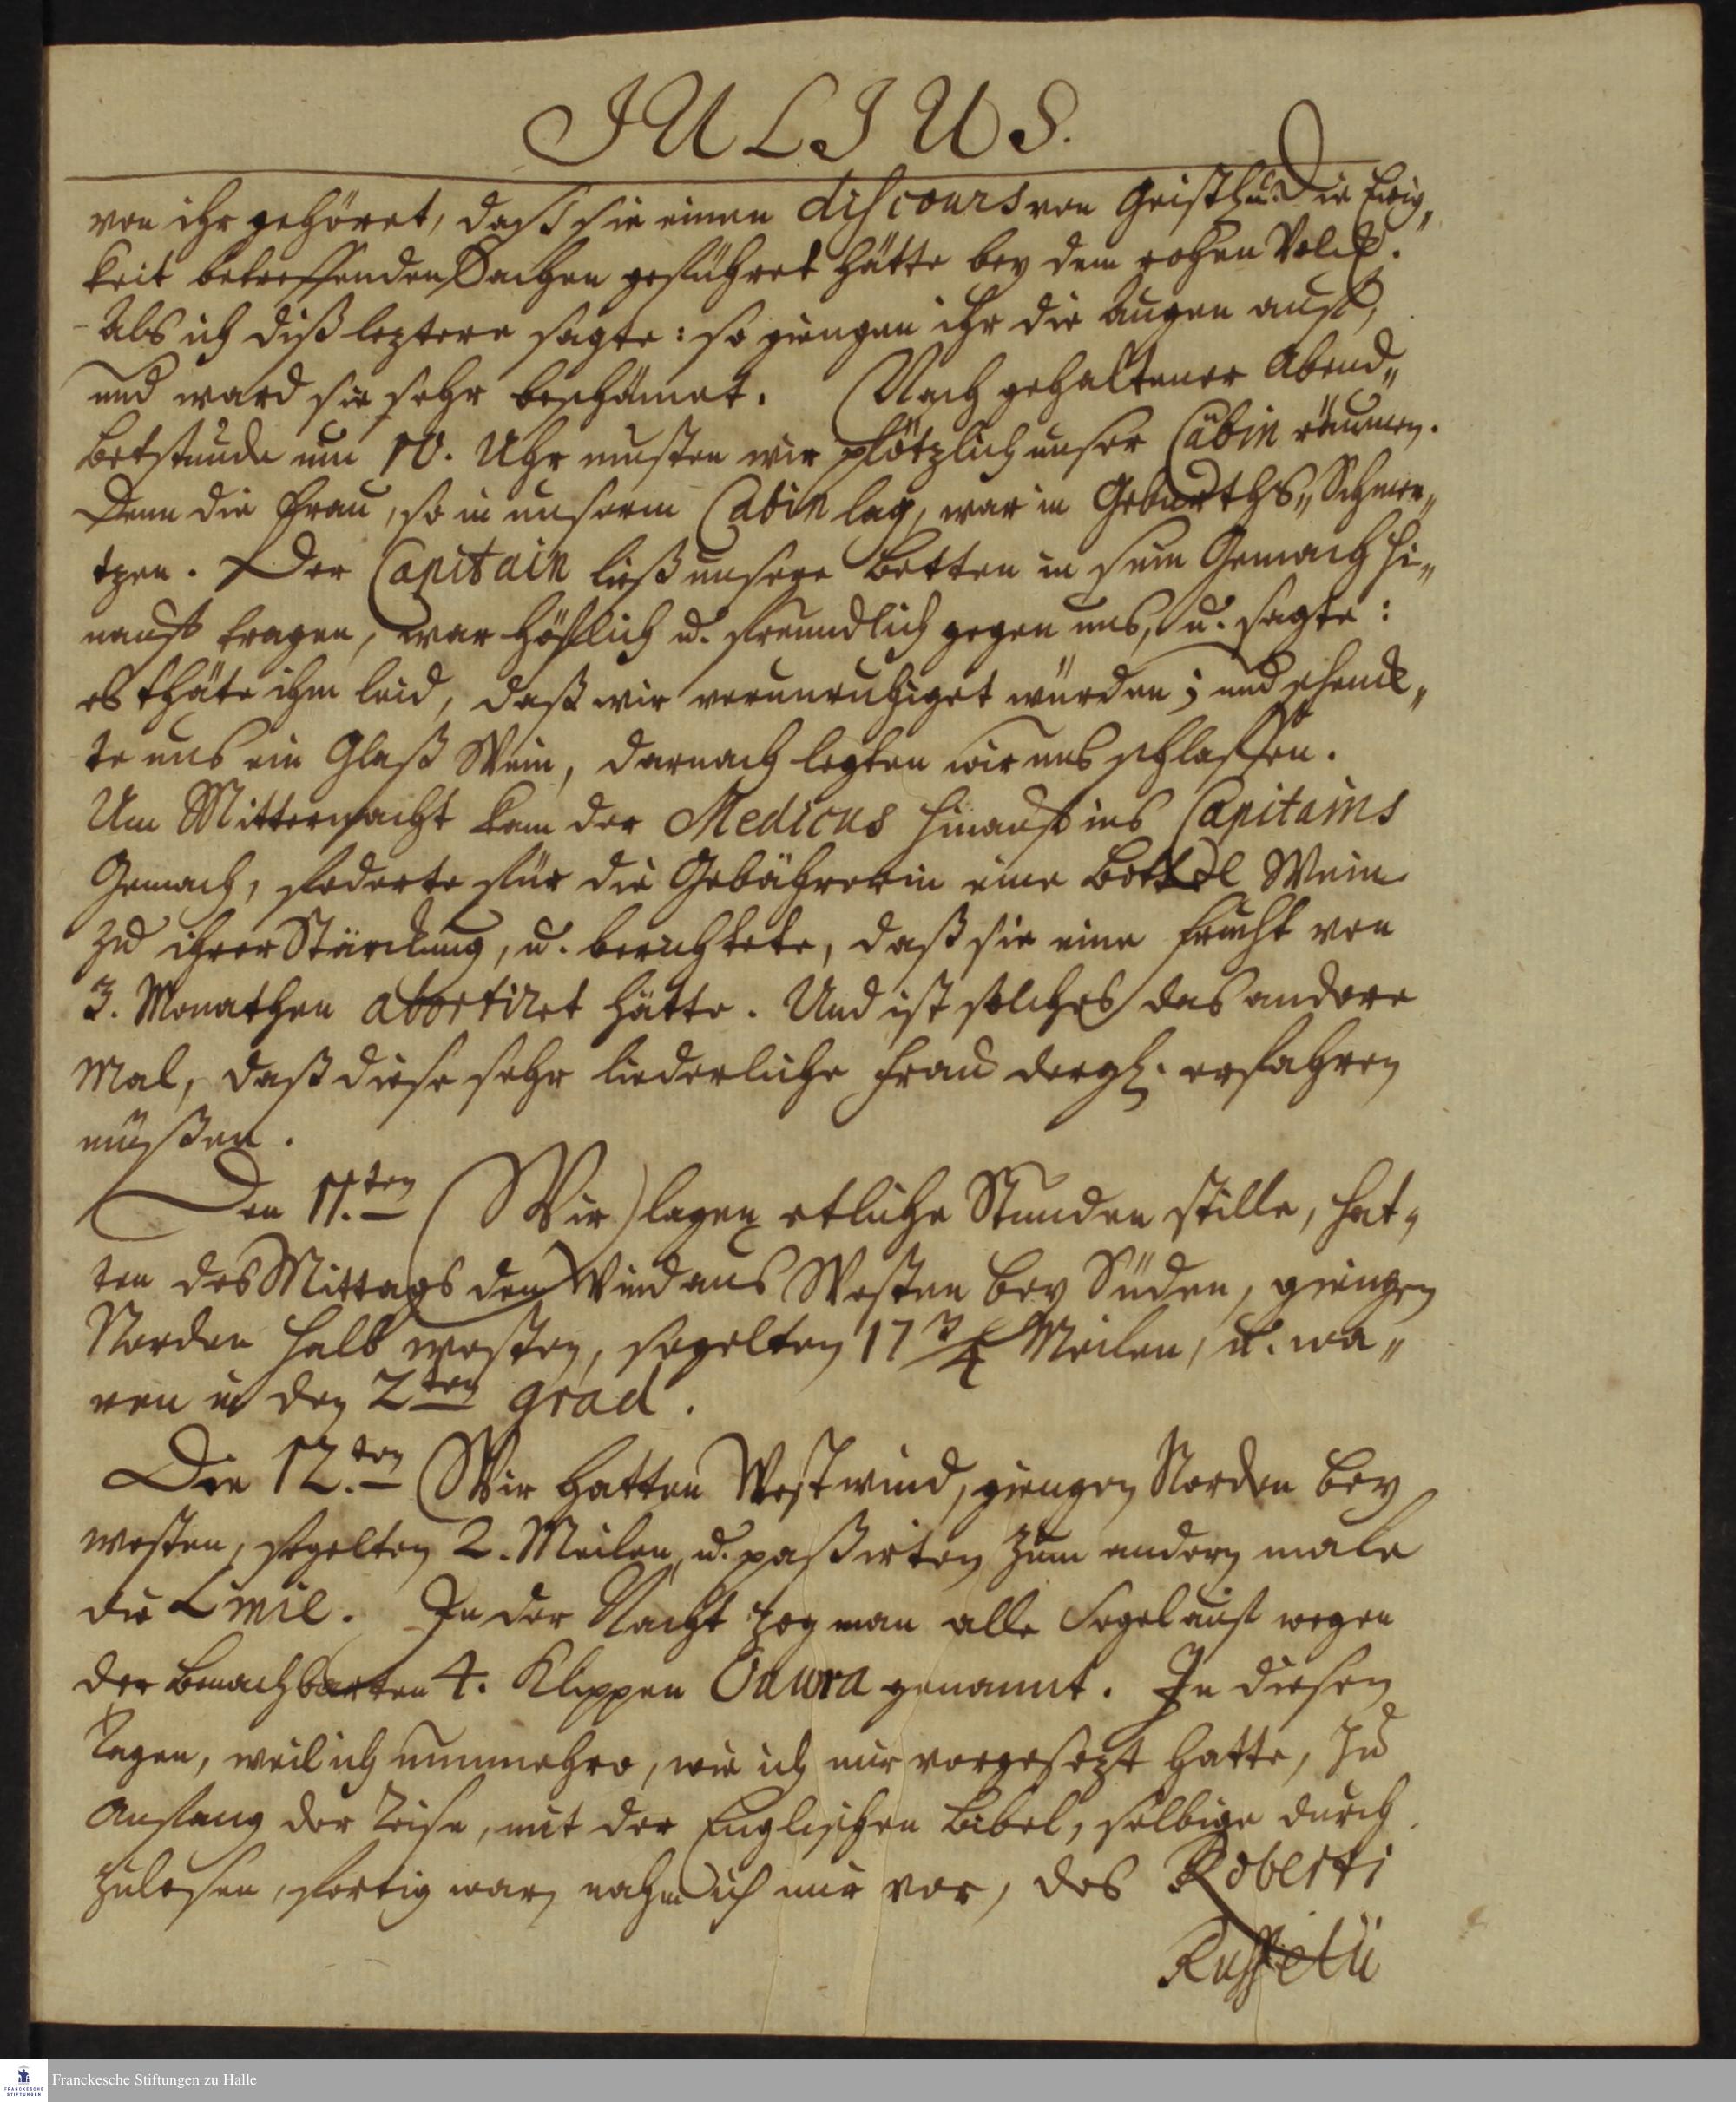 JULIUS.
von ihr gehöret, daß sie einen discours von Geistl. u. die Ewig„
keit betreffenden Sachen geführet hätte bey dem rohen Volck.
Als ich diß leztere sagte: so giengen ihr die Augen auf,
und ward sie sehr beschämet. Nach gehaltener Abend„
betstunde um 10. Uhr musten wir plötzlich unser Cabin räumen.
Denn die Frau, so in unserm Cabin lag, war in Geburths„Schmer„
tzen. Der Capitain ließ unsere Betten in sein Gemach hi„
nauf tragen, war höflich u. freundlich gegen uns, u. sagte:
es thäte ihm leid, daß wir verunruhiget würden; und schenck„
te uns ein Glaß Wein, darnach legten wir uns schlaffen.
Um Mitternacht kam der Medicus hinauf ins Capitains
Gemach, foderte für die Gebährerin eine Bottel Wein
zu ihrer Stärckung, u. berichtete, daß sie eine Frucht von
3. Monathen abortiret hätte. Und ist solches das andere
Mal, daß diese sehr liederliche Frau dergl. erfahren
müßen.
Den 11.ten (Wir) lagen etliche Stunden stille, hat„
ten des Mittags den Wind aus Westen bey Süden, giengen
Norden halb westen, segelten 17 3/4 Meilen, u. wa„
ren in den 2ten grad.
Den 12.ten (Wir hatten Westwind, giengen Norden bey
westen, segelten 2. Meilen, u. paßirten zum andern male
die Linie. In der Nacht zog man alle Segel auf wegen
der benachbarten 4. Klippen genannt. In diesen
Tagen, weil ich nunmehro, wie ich mir vorgesezt hatte, zu
Anfang der Reise, mit der Englischen Bibel, selbige durch
zulesen, fertig war, nahm ich mir vor, des Roberti
Russelii
Franckesche Stiftungen zu Halle
FRANCKESCHE
STIFTUNGEN